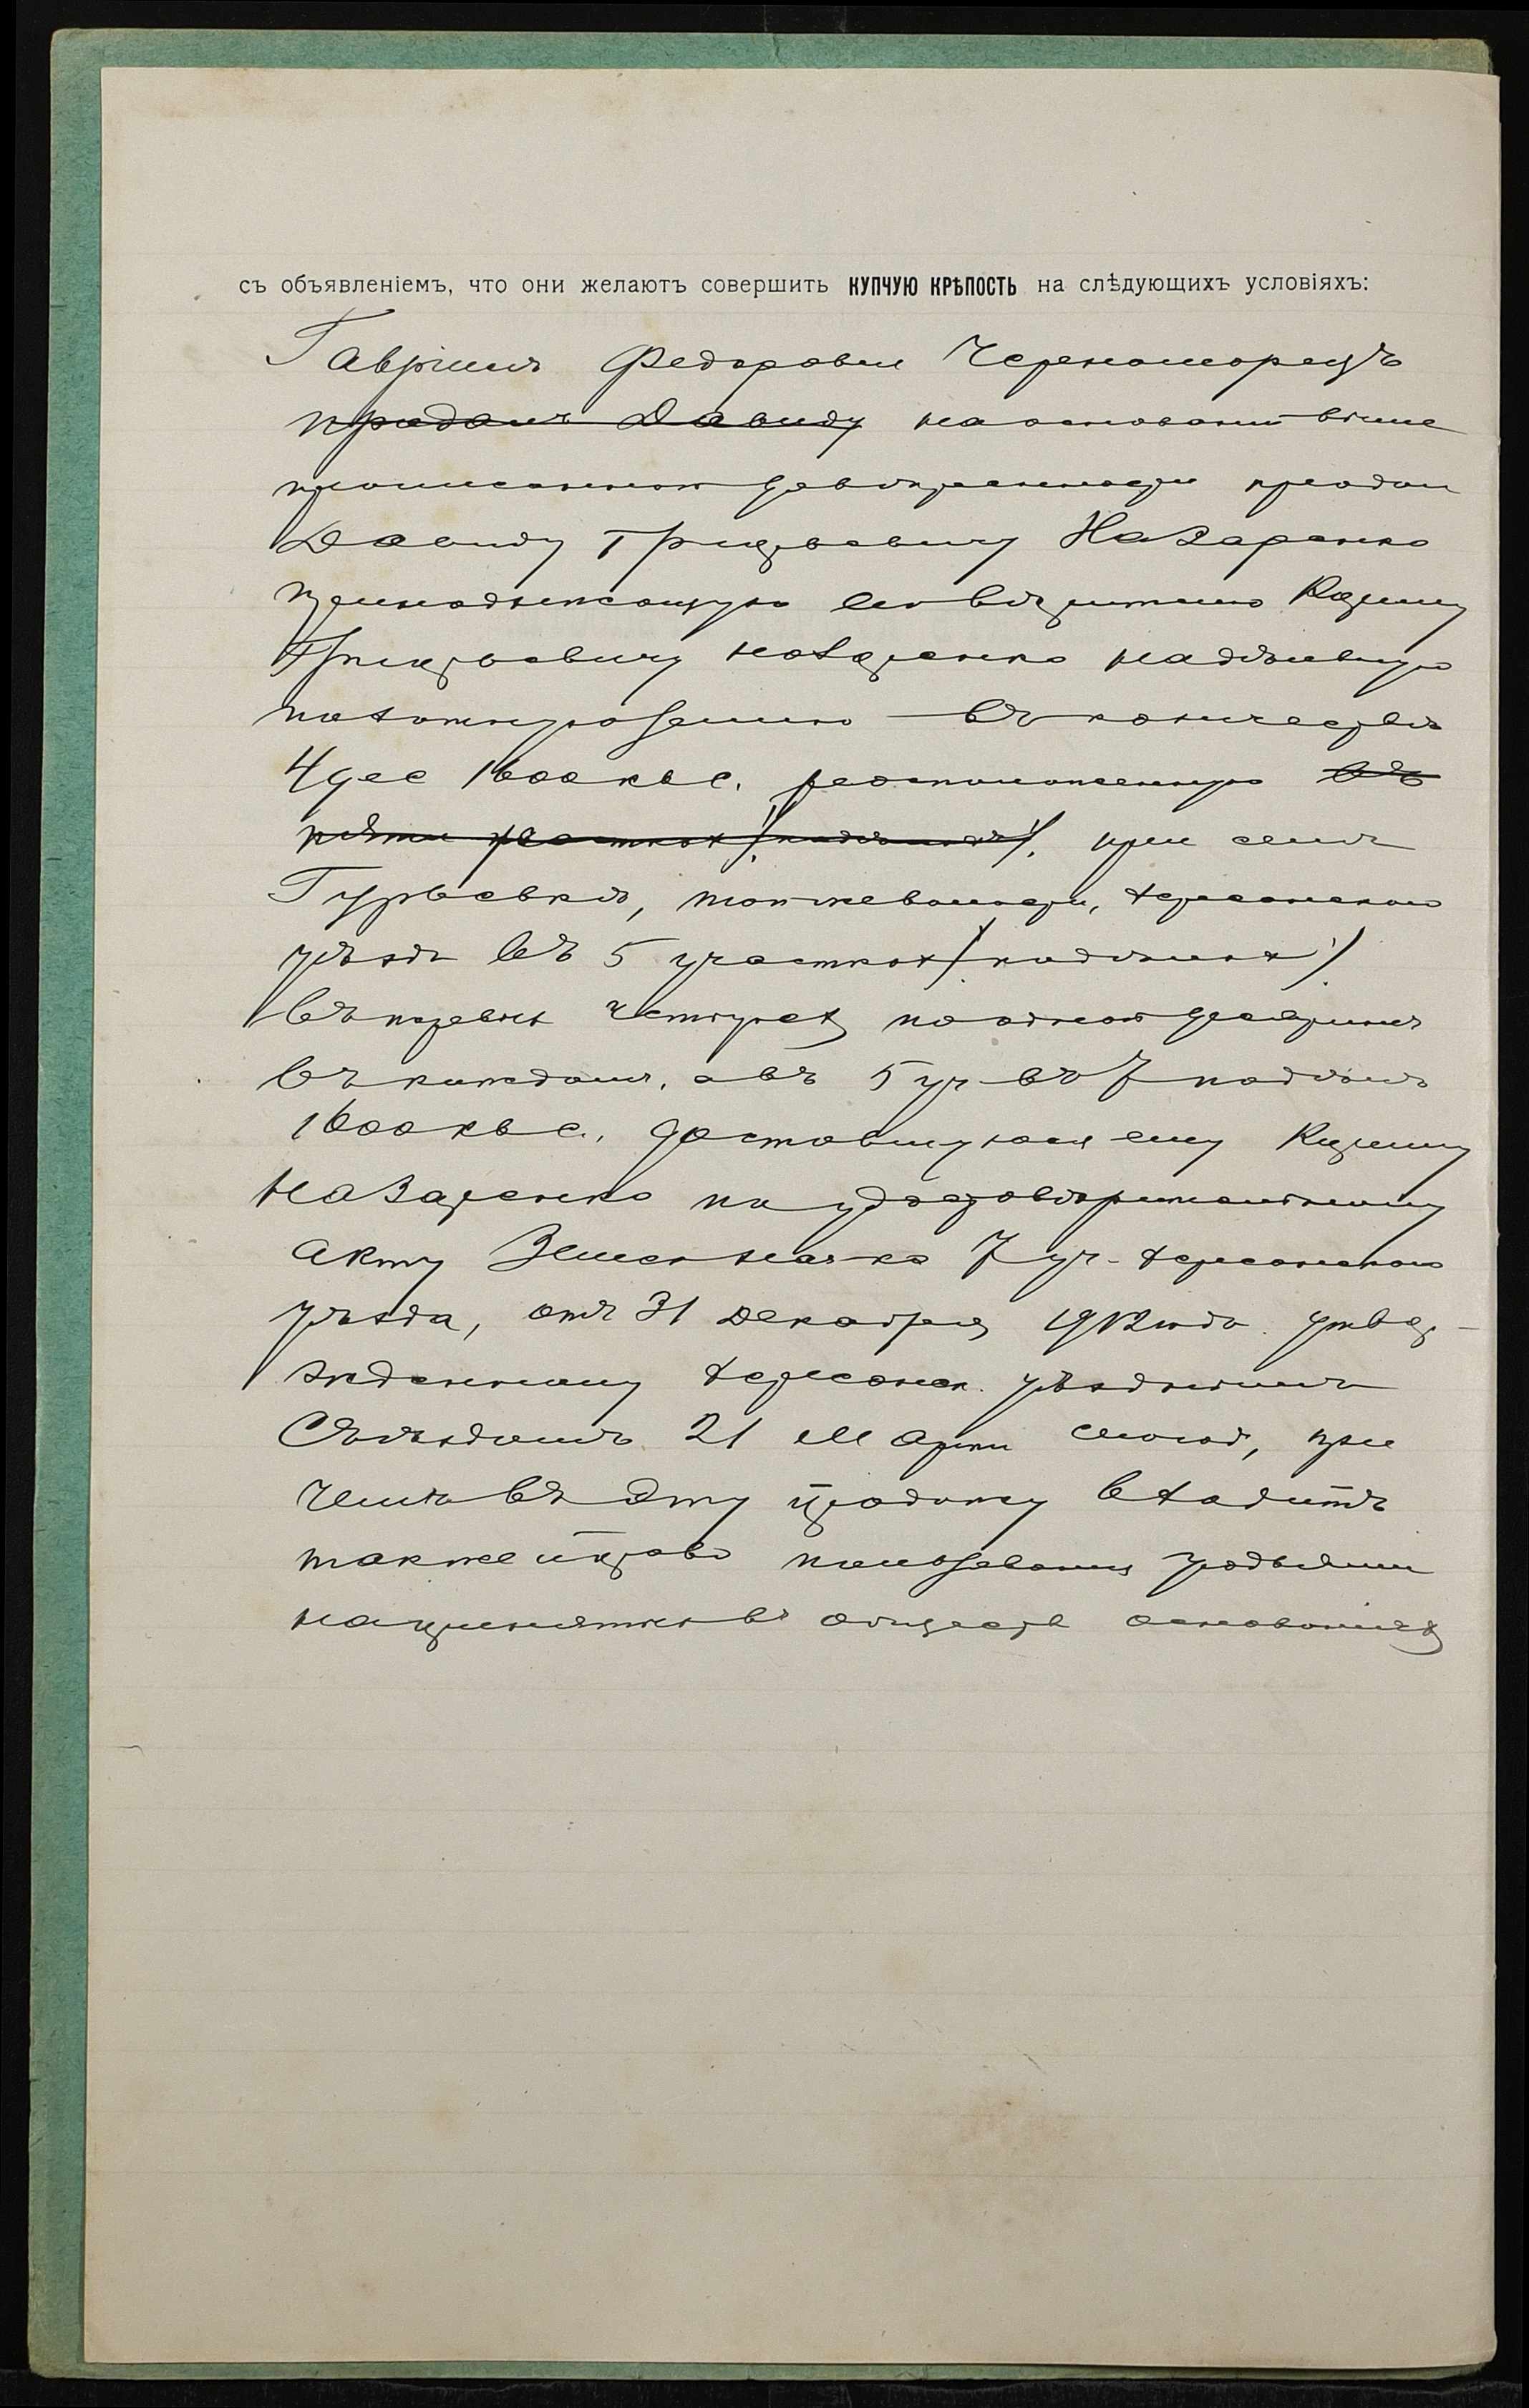 съ объявленіемъ, что они желаютъ совершить КУПЧУЮ КРѢПОСТЬ на слѣдующихъ условіяхъ:
Гавріилъ Федоровичъ Черноморецъ
продалъ Давиду на основаніи выше
прописанной довѣренности продал
Давиду Григорьевичу Назаренко
принадлежащую его вѣрителю
Григорьевичу Назаренко надѣльную
пахотную землю въ количествѣ
4 дес 1600 кв с. расположенную въ
пяти участкахъ /надѣлахъ/ при селѣ
Гурьевкѣ, той же волости, Херсонскаго
уѣзда въ 5 участках /надѣлах/
въ первых четырех по одной десятинѣ
въ каждом, а въ 5 уч
1600 кв с., доставшуюся ему
Назаренко по удостовѣрительному
акту Земск Нач-ка 7 уч. Херсонскаго
уѣзда, отъ 31 Декабря 1912 года утвер-
жденному Херсонск. уѣздным
Съѣздомъ 21 Марта сего год, при
чемъ въ эту продажу входитъ
также и право пользованія угодьями
на принятых въ обществѣ основаніях